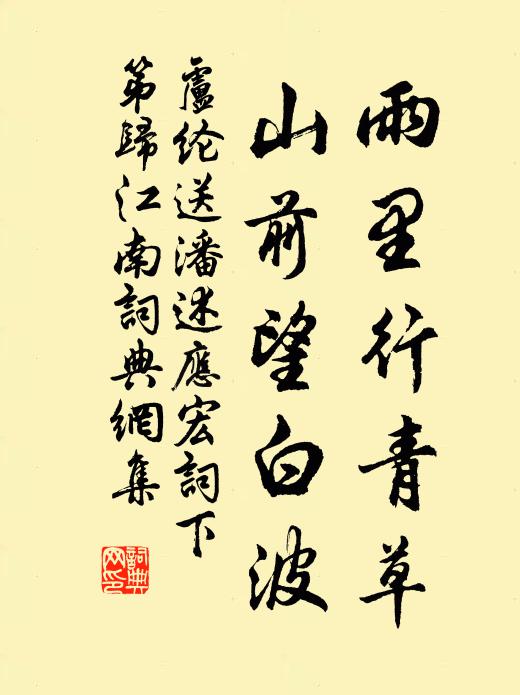 雨里行青草
山前望白波
盧纶送潘述應宏詞下
第歸江南詞典網集
詞典网印